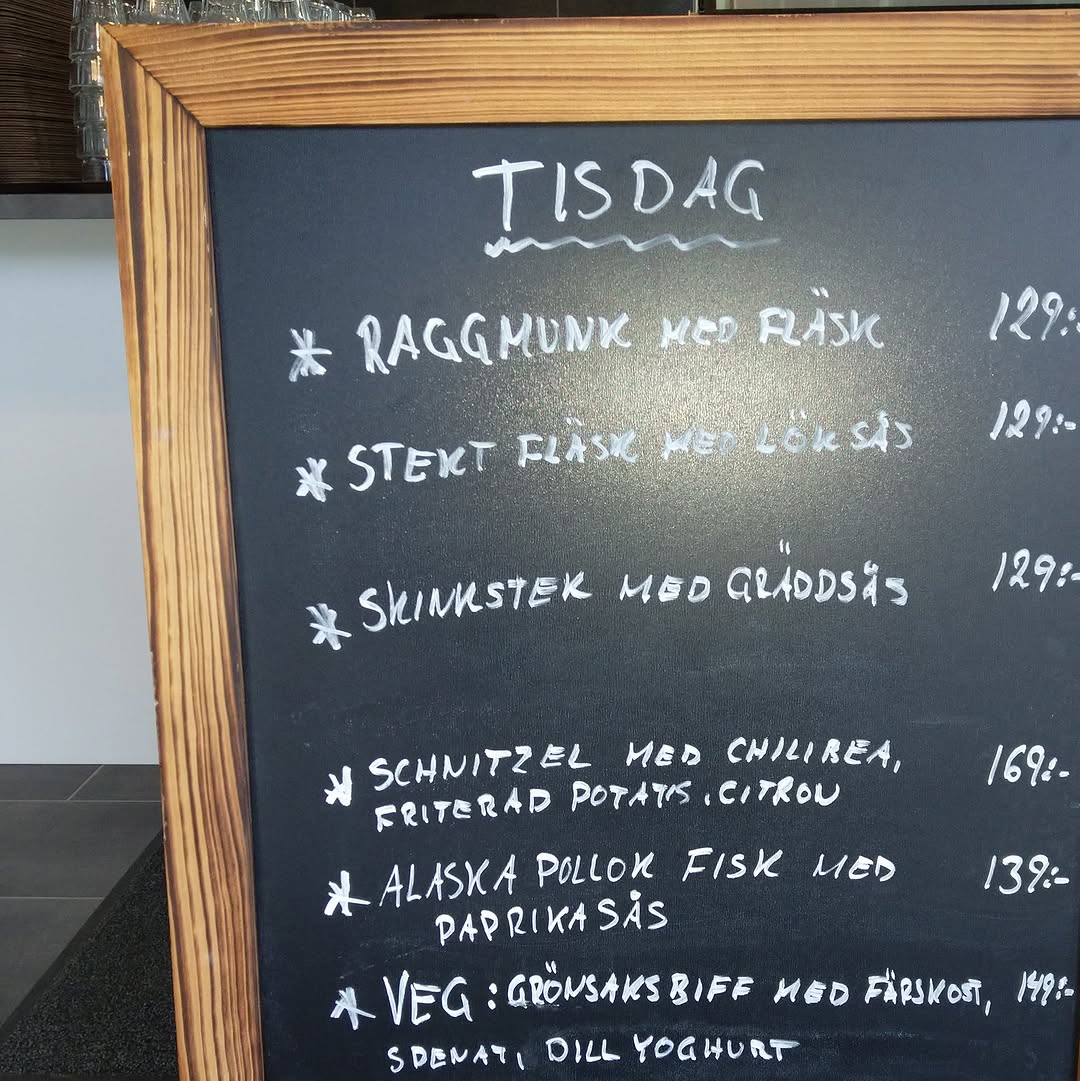 TISDAG
* RAGGMUNK MED FLÄSK 129:-
* STEKT FLÄSK MED LÖKSÅS 129:-
* SKINKSTEK MED GRÄDDSÅS 129:-
* SCHNITZEL MED CHILIBEA, 169:-
FRITERAD POTATIS, CITRON
* ALASKA POLLOK FISK MED 139:-
PAPRIKASÅS
* VEG: GRÖNSAKSBIFF MED FÄRSKOST, 149:-
SPENAT, DILL YOGHURT